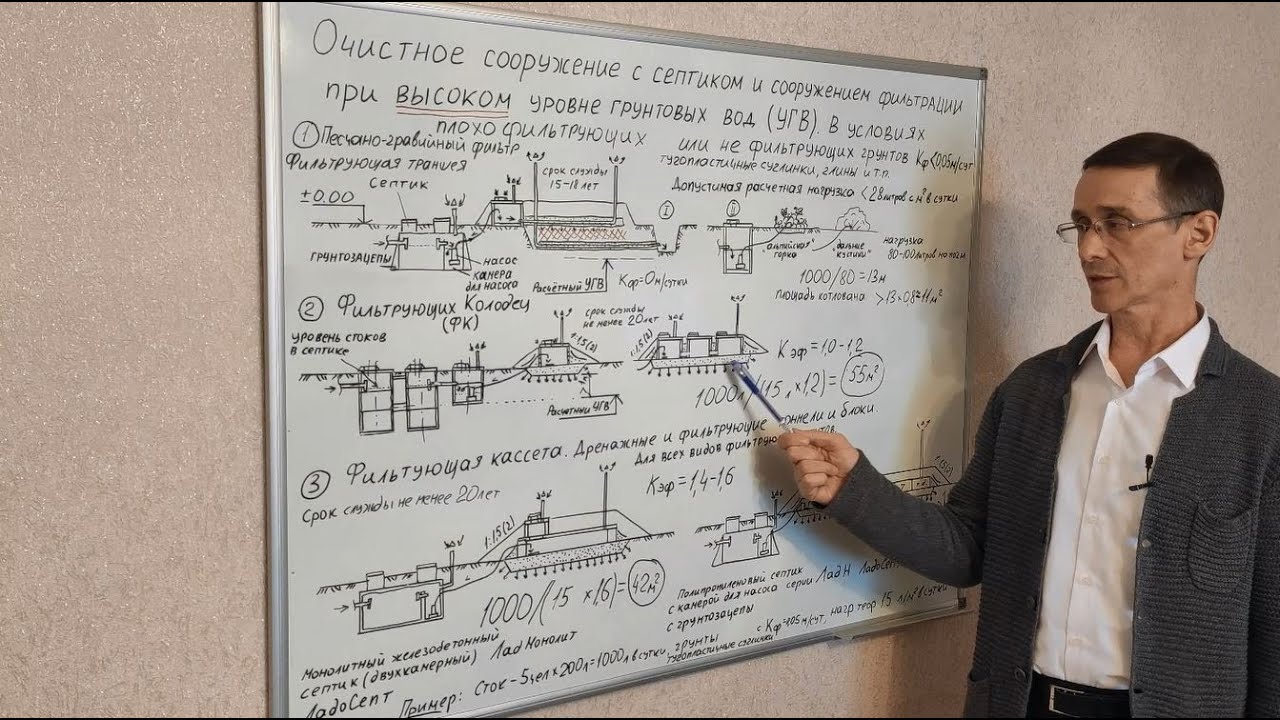 Очистное сооружение с септиком и сооружением фильтрации
при ВЫСОКОМ уровне грунтовых вод (УГВ). В условиях
плохо фильтрующих или не фильтрующих грунтов Кф<0,05м/сут
тугопластичные суглинки, глины и т.п.
① Песчано-гравийный фильтр
Фильтрующая траншея
Септик
±0.00
срок службы
15-18 лет
Допустимая расчетная нагрузка <28литров с м² в сутки
I
II
грунтозацепы
насос
камера
для насоса
Расчётный УГВ
Кф=0м/сутки
"альпийская
горка"
"дальние
кустики"
нагрузка
80-100литров на пог м
1000/80=13м
площадь котлована >13×0,8=11м²
② Фильтрующих Колодец
(ФК)
уровень стоков
в септике
срок службы
не менее 20лет
1:1.5(2)
1:1.5(2)
Расчетный УГВ
Кэф=1,0-1,2
1000л/(15л×1,2)=55м²
③ Фильтующая кассета. Дренажные и фильтрующие тоннели и блоки.
Для всех видов
Срок службы не менее 20лет
Кэф=1,4-1,6
1:1.5(2)
1:1.5(2)
1000/(15×1,6)=42м²
Монолитный железобетонный
септик (двухкамерный) Лад Монолит
ЛадоСепт
Полипропиленовый септик
с камерой для насоса серии Лад Н ЛадоСепт
с грунтозацепы
Пример: Сток-5чел×200л=1000л в сутки, грунты
тугопластичные суглинки
с Кф=0,05 м/сут, нагр теор 15 л/м² в сутки